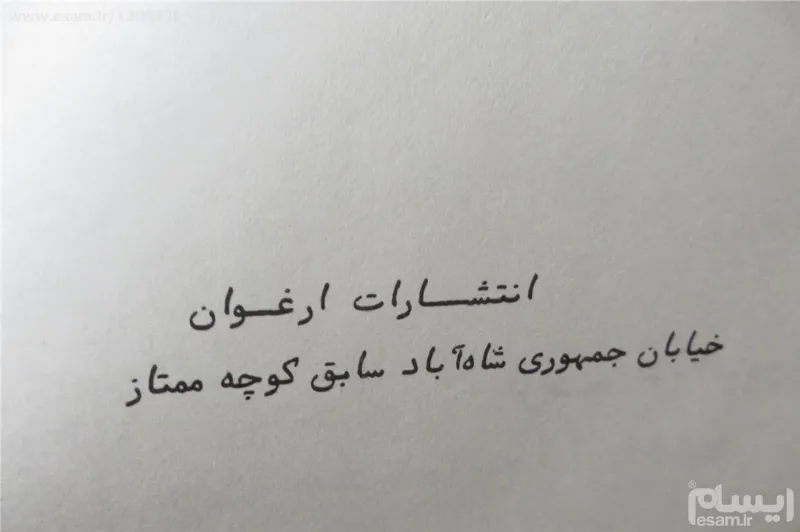 انتشارات ارغوان
خیابان جمهوری شاه‌آباد سابق کوچه ممتاز
ایسام
esam.ir